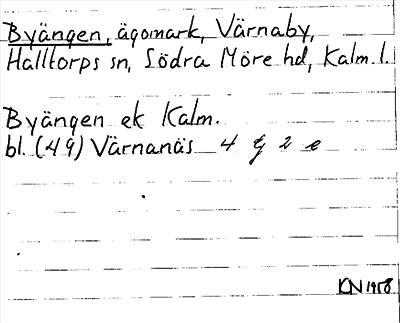 Byängen, ägomark, Värnaby,
Halltorps sn, Södra Möre hd, Kalm. l.
Byängen ek Kalm.
bl. (49) Värnanäs 4 g 2 e
KN 1958